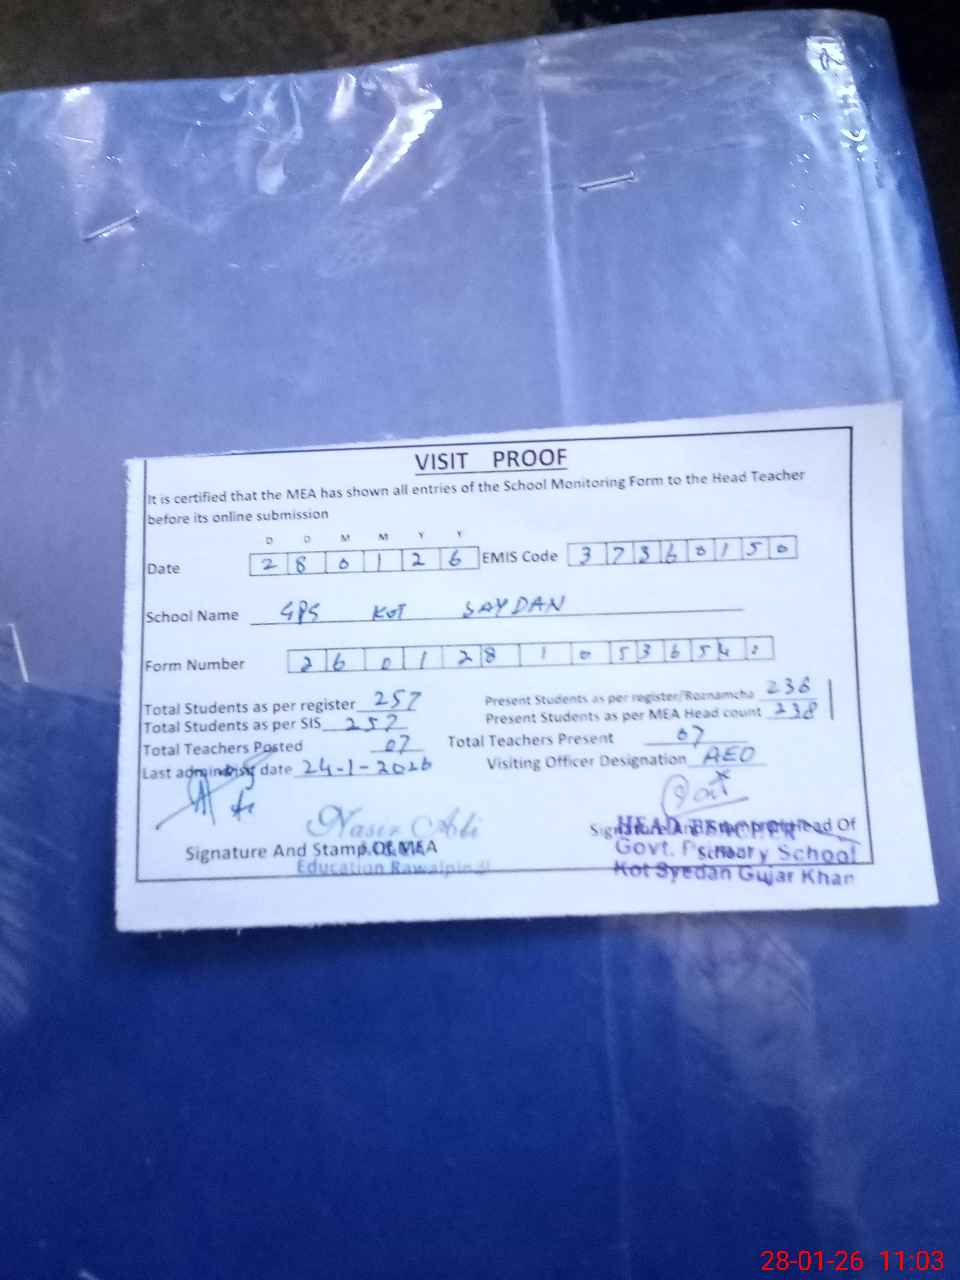 VISIT PROOF
It is certified that the MEA has shown all entries of the School Monitoring Form to the Head Teacher
before its online submission
D D M M Y Y
Date 2 8 0 1 2 6 EMIS Code 3 7 3 6 0 1 5 0
School Name GPS KOT SAYDAN
Form Number 2 6 0 1 2 8 1 0 5 3 6 5 4
Total Students as per register 257 Present Students as per register/Roznamcha 238
Total Students as per SIS 257 Present Students as per MEA Head count 238
Total Teachers Posted 07 Total Teachers Present 07
Last admin visit date 24-1-2026 Visiting Officer Designation AEO
Nasir Ali
Signature And Stamp Of MEA
Education Rawalpindi
Signature And Stamp of Head Of
School
HEAD TEACHER
Govt. Primary School
Kot Syedan Gujar Khan
28-01-26 11:03